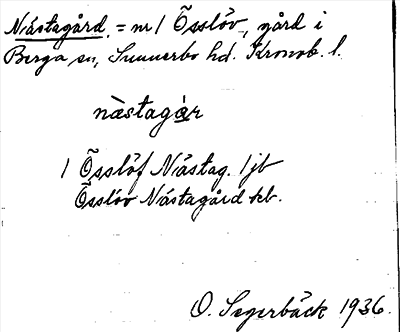 Nästagård. = nr 1 Össlöv, gård i
Berga sn, Sunnerbo hd. Kronob. l.
nàstagàr
1 Össlöf Nästag. 1 jb
Össlöv Nästagård kb.
O. Segerbäck 1936.